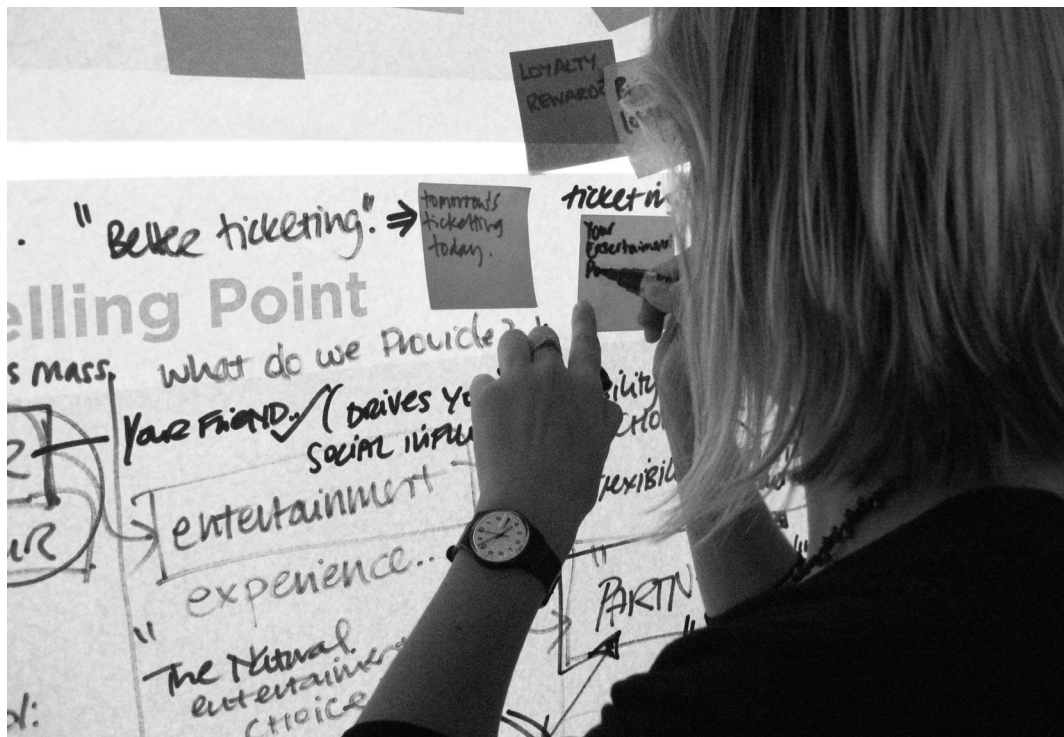 LOYALTY
REWARDS
"Better ticketing". ⇒
tomorrow's
ticketting
today.
ticketin
Your
Entertainment
Po
elling Point
s mass.
what do we Provide?
Your FRIEND. ✓ (DRIVES YO
SOCIAL INFLU
ibility
CHO
flexibil
entertainment
experience...
UR
"PARTN
"The Natural
entertainmen
CHOICE